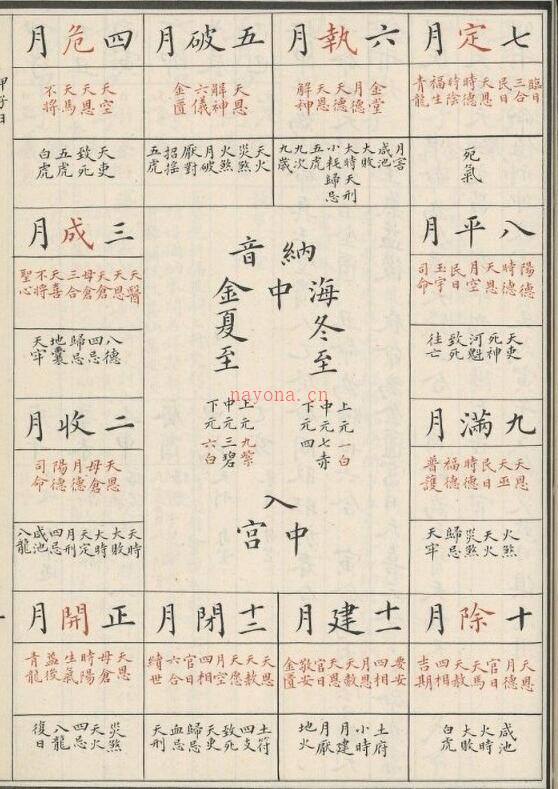 七定月
臨日
三合
民日
天恩
時德
時陰
福生
青龍
死氣
六執月
金堂
月德
天德
天恩
解神
月害
咸池
大敗
大時天刑
小耗歸忌
五虎
九次
九歲
五破月
天恩
解神
六儀
金匱
天火
災煞
火煞
月破
厭對
招搖
五虎
四危月
天空
天恩
天馬
不將
天吏
致死
五虎
白虎
八平月
陽德
時德
天恩
月空
民日
玉宇
司命
天吏
死神
河魁
致死
往亡
納音
海中金
冬至
夏至
上元一白
中元七赤
下元四
上元九紫
中元三碧
下元六白
入中宮
nayona.cn
三成月
天醫
天恩
天倉
母倉
三合
天喜
不將
聖心
八德
四忌
歸忌
地囊
天牢
九滿月
天恩
天巫
民日
時德
福德
普護
火煞
天火
災煞
歸忌
天牢
二收月
天恩
母倉
月德
陽德
司命
天時
大敗
大時
天定
月刑
四忌
咸池
八龍
十除月
天恩
月德
官日
天馬
天赦
四相
吉期
咸池
火時
大敗
白虎
十一建月
要安
四相
月恩
天赦
天恩
官日
敬安
金匱
土府
小時
月建
月厭
地火
十二閉月
天恩
天赦
天愿
月空
四相
官日
六合
續世
土符
四支
致死
天吏
歸忌
血忌
天刑
正開月
天恩
母倉
時陽
生氣
益後
青龍
災煞
天火
四忌
八龍
復日